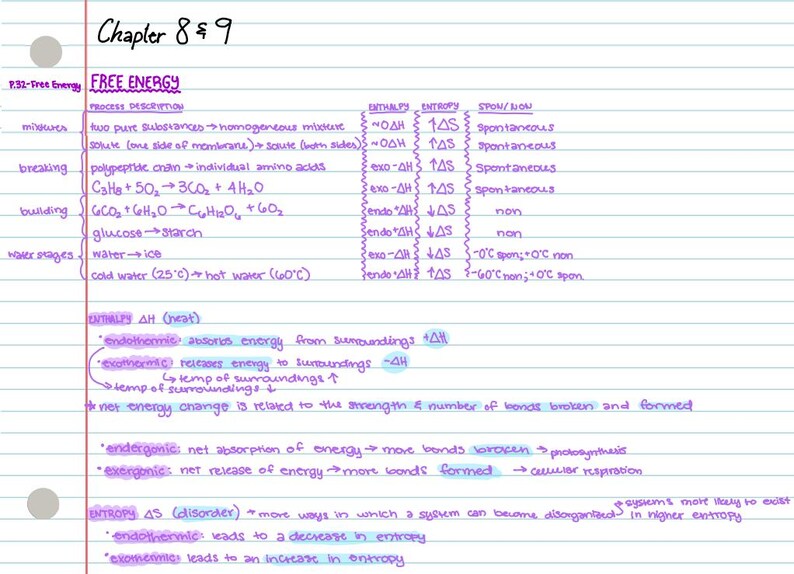 Chapter 8 & 9
P.32-Free Energy FREE ENERGY
PROCESS DESCRIPTION ENTHALPY ENTROPY SPON/NON
mixtures two pure substances → homogeneous mixture ~0ΔH ↑ΔS spontaneous
solute (one side of membrane) → solute (both sides) ~0ΔH ↑ΔS spontaneous
breaking polypeptide chain → individual amino acids exo -ΔH ↑ΔS spontaneous
C₃H₈ + 5O₂ → 3CO₂ + 4H₂O exo -ΔH ↑ΔS spontaneous
building 6CO₂ + 6H₂O → C₆H₁₂O₆ + 6O₂ endo +ΔH ↓ΔS non
glucose → starch endo +ΔH ↓ΔS non
water stages water → ice exo -ΔH ↓ΔS -0°C spon; +0°C non
cold water (25°C) → hot water (60°C) endo +ΔH ↑ΔS -60°C non; +0°C spon.
ENTHALPY ΔH (heat)
• endothermic: absorbs energy from surroundings +ΔH
• exothermic: releases energy to surroundings -ΔH
↳ temp of surroundings ↑
→ temp of surroundings ↓
* net energy change is related to the strength & number of bonds broken and formed
• endergonic: net absorption of energy → more bonds broken → photosynthesis
• exergonic: net release of energy → more bonds formed → cellular respiration
ENTROPY ΔS (disorder) → more ways in which a system can become disorganized → systems more likely to exist
in higher entropy
• endothermic: leads to a decrease in entropy
• exothermic: leads to an increase in entropy